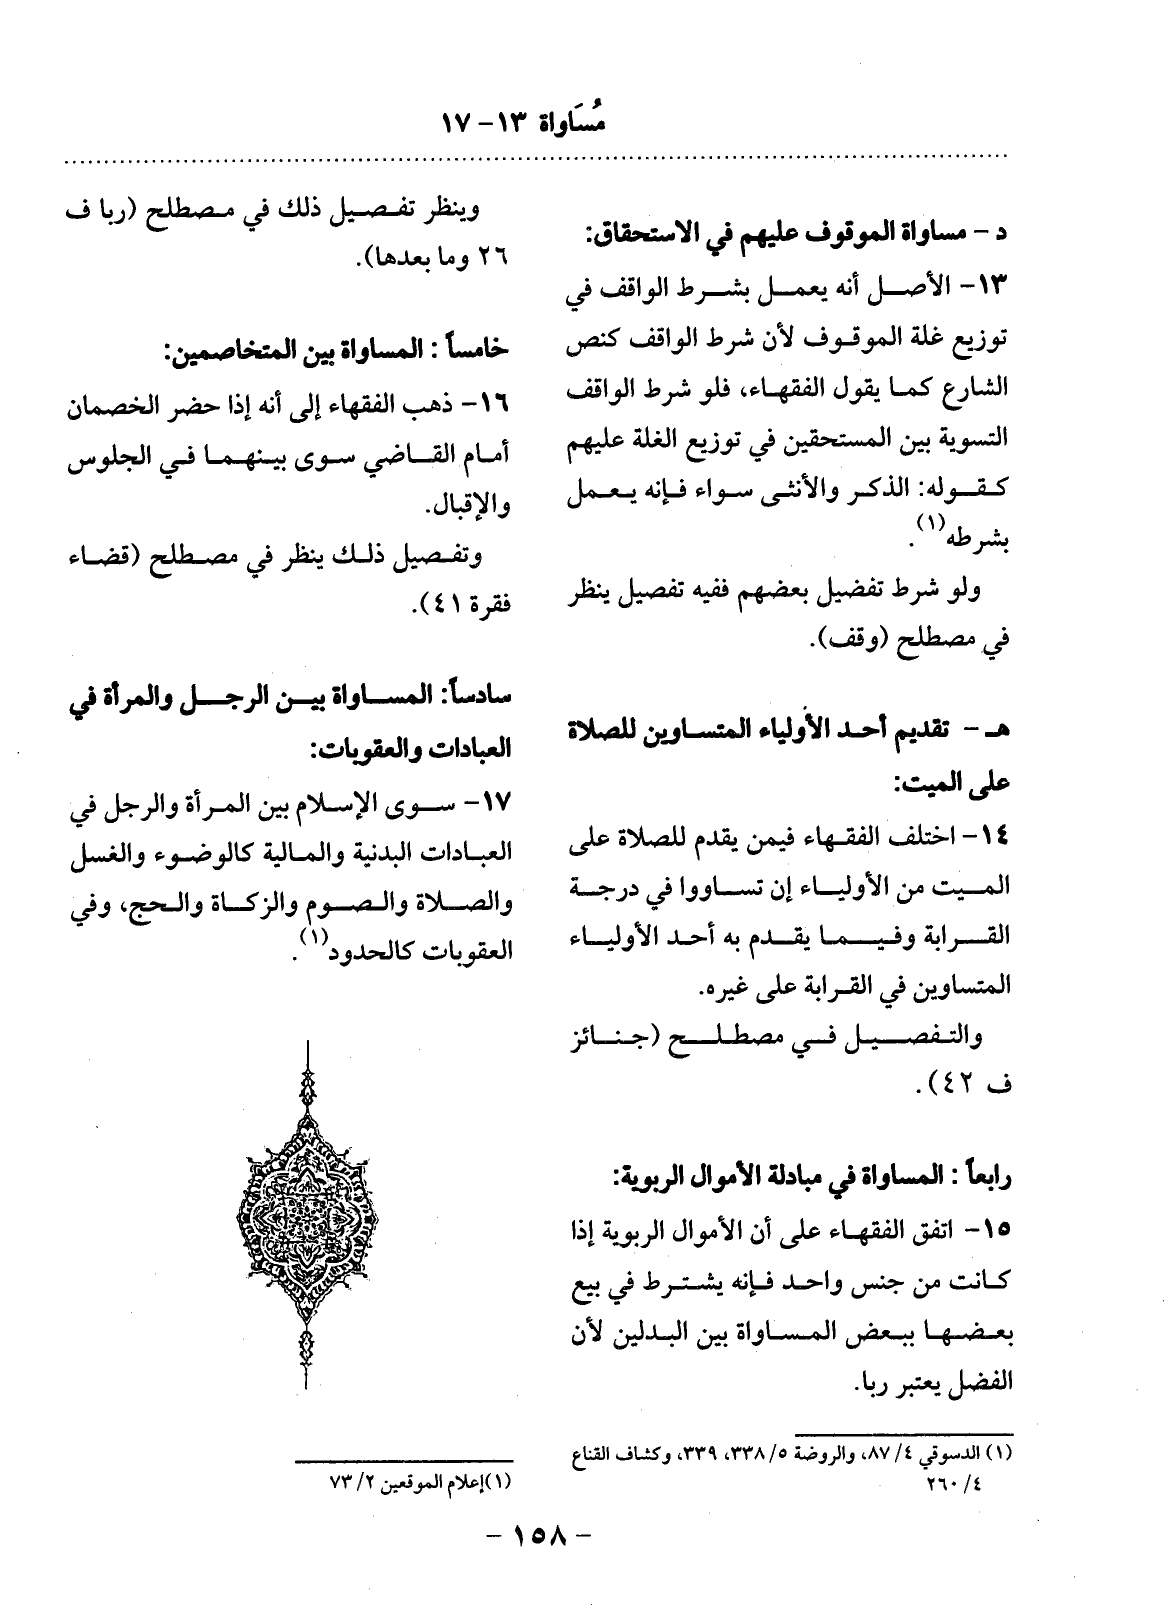 مُسَاواة ١٣- ١٧
د - مساواة الموقوف عليهم في الاستحقاق:
١٣- الأصل أنه يعمل بشرط الواقف في
توزيع غلة الموقوف لأن شرط الواقف كنص
الشارع كما يقول الفقهاء، فلو شرط الواقف
التسوية بين المستحقين في توزيع الغلة عليهم
كقوله: الذكر والأنثى سواء فإنه يعمل
بشرطه(١).
ولو شرط تفضيل بعضهم ففيه تفصيل ينظر
في مصطلح (وقف).
هـ - تقديم أحد الأولياء المتساوين للصلاة
على الميت:
١٤- اختلف الفقهاء فيمن يقدم للصلاة على
الميت من الأولياء إن تساووا في درجة
القرابة وفيما يقدم به أحد الأولياء
المتساوين في القرابة على غيره.
والتفصيل في مصطلح (جنائز
ف ٤٢).
رابعاً : المساواة في مبادلة الأموال الربوية:
١٥- اتفق الفقهاء على أن الأموال الربوية إذا
كانت من جنس واحد فإنه يشترط في بيع
بعضها ببعض المساواة بين البدلين لأن
الفضل يعتبر ربا.
(١) الدسوقي ٤/ ٨٧، والروضة ٥/ ٣٣٨، ٣٣٩، وكشاف القناع
٤/ ٢٦٠
وينظر تفصيل ذلك في مصطلح (ربا ف
٢٦ وما بعدها).
خامساً : المساواة بين المتخاصمين:
١٦- ذهب الفقهاء إلى أنه إذا حضر الخصمان
أمام القاضي سوى بينهما في الجلوس
والإقبال.
وتفصيل ذلك ينظر في مصطلح (قضاء
فقرة ٤١).
سادساً: المساواة بين الرجل والمرأة في
العبادات والعقوبات:
١٧- سوى الإسلام بين المرأة والرجل في
العبادات البدنية والمالية كالوضوء والغسل
والصلاة والصوم والزكاة والحج، وفي
العقوبات كالحدود(١).
(١)إعلام الموقعين ٢/ ٧٣
- ١٥٨ -